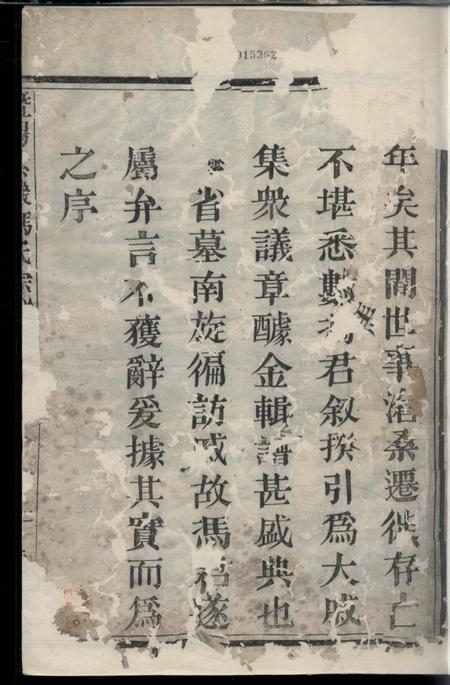 015362
年矣其閒世事滄桑遷徙存亡
不堪悉數馮君叙揆引爲大戚
集衆議章醵金輯譜甚盛典也
雲省墓南旋徧訪戚故馮君遂
屬弁言不獲辭爰據其實而爲
之序
暨陽 馮氏宗